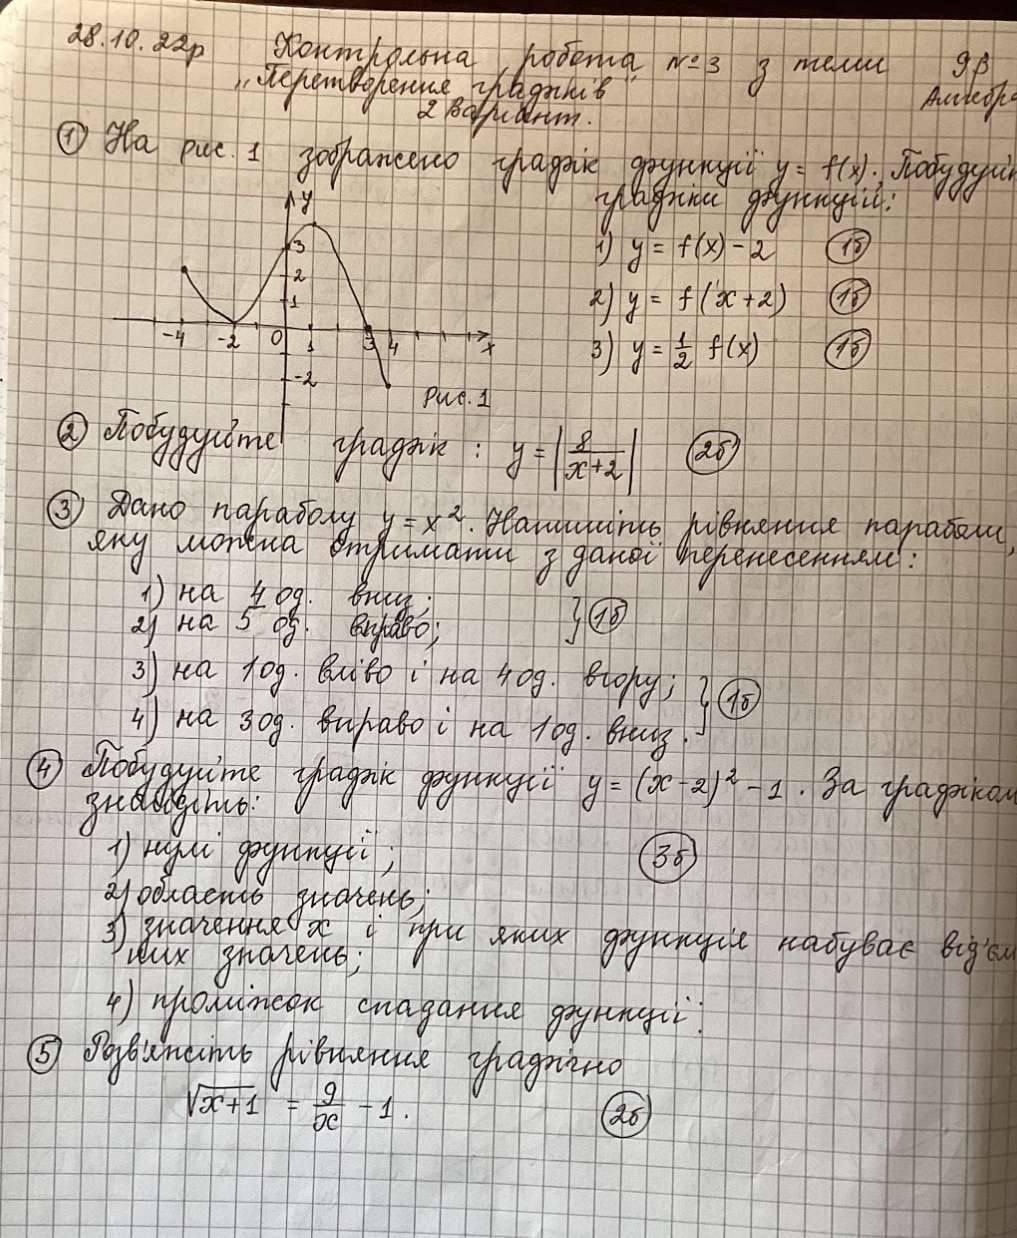 28.10.22р Контрольна робота №3 з теми 9В
„Перетворення графіків" Алгебра
2 варіант.
① На рис. 1 зображено графік функції y = f(x). Побудуйт
графіки функцій:
1) y = f(x) - 2 1б
2) y = f(x+2) 1б
3) y = 1/2 f(x) 1б
y
3
2
1
-4 -2 0 1 3 4 x
-2
Рис. 1
② Побудуйте графік : y = |8/(x+2)| 2б
③ Дано параболу y = x². Напишіть рівняння параболи,
яку можна отримати з даної перенесенням:
1) на 4 од. вниз;
2) на 5 од. вправо; } 1б
3) на 1 од. вліво і на 4 од. вгору;
4) на 3 од. вправо і на 1 од. вниз. } 1б
④ Побудуйте графік функції y = (x-2)² - 1. За графіком
знайдіть:
1) нулі функції; 3б
2) область значень;
3) значення x і при яких функція набуває від'єм
них значень;
4) проміжок спадання функції.
⑤ Розв'яжіть рівняння графічно
√(x+1) = 9/x - 1. 2б